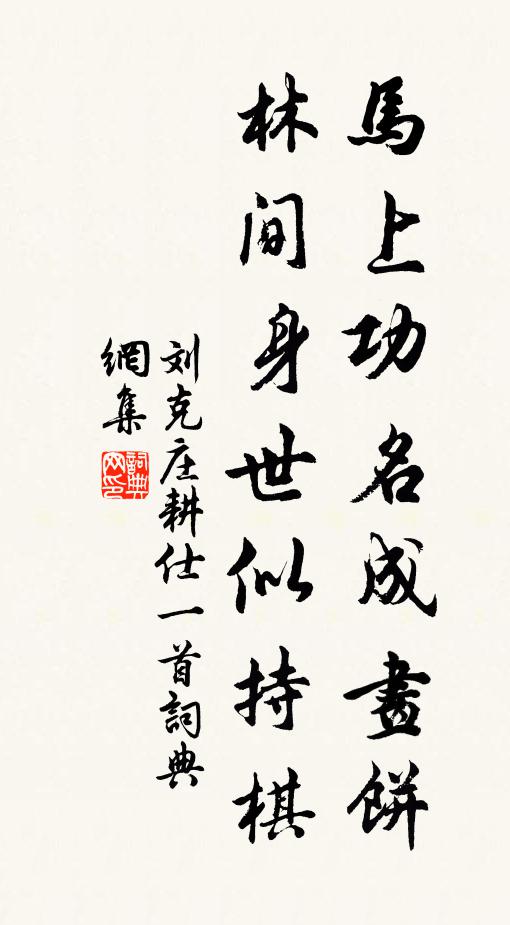 馬上功名成畫餅
林间身世似持棋
刘克庄耕仕一首詞典
網集
詞典网印